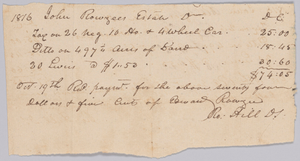 1816 John Rowzees Estate Dr D C
Tax on 26 neg. 10 Do. & 4 Wheel Car. 25.00
Ditto on 497½ Acres of Land 18.45
30 Levies @ $1.53 30.60
$74.05
Oct. 19th Recd paymt for the above seventy four
Dollars & five Cents of Edward Rowzee
Re: Hill DS